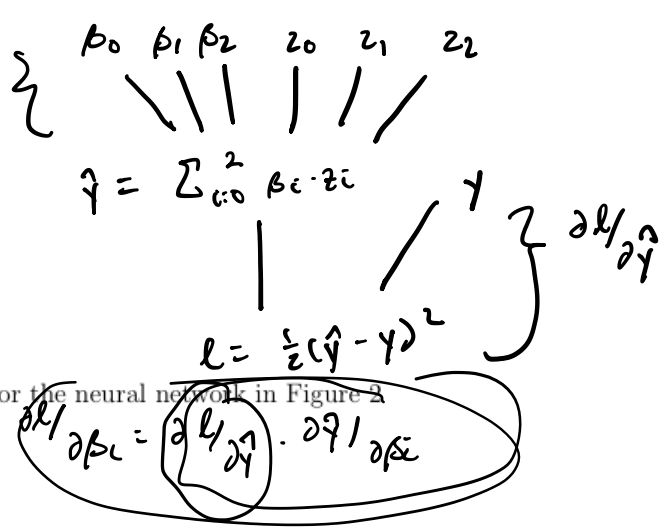 β0 β1 β2 z0 z1 z2
ŷ = Σ i=0 2 βi · zi y
∂l/∂ŷ
l = 1/2 (ŷ - y)²
or the neural network in Figure 2
∂l/∂βi = ∂l/∂ŷ · ∂ŷ/∂βi